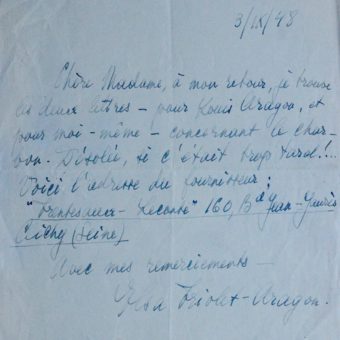 3/IX/48
Chère Madame, à mon retour, je trouve
les deux lettres – pour Louis Aragon, et
pour moi-même – concernant le char-
bon. Désolée, si c'était trop tard!...
Voici l'adresse du fournisseur;
160, Bd Jean-Jaurès
Clichy (Seine)
Avec mes remerciements –
Elsa Triolet-Aragon.